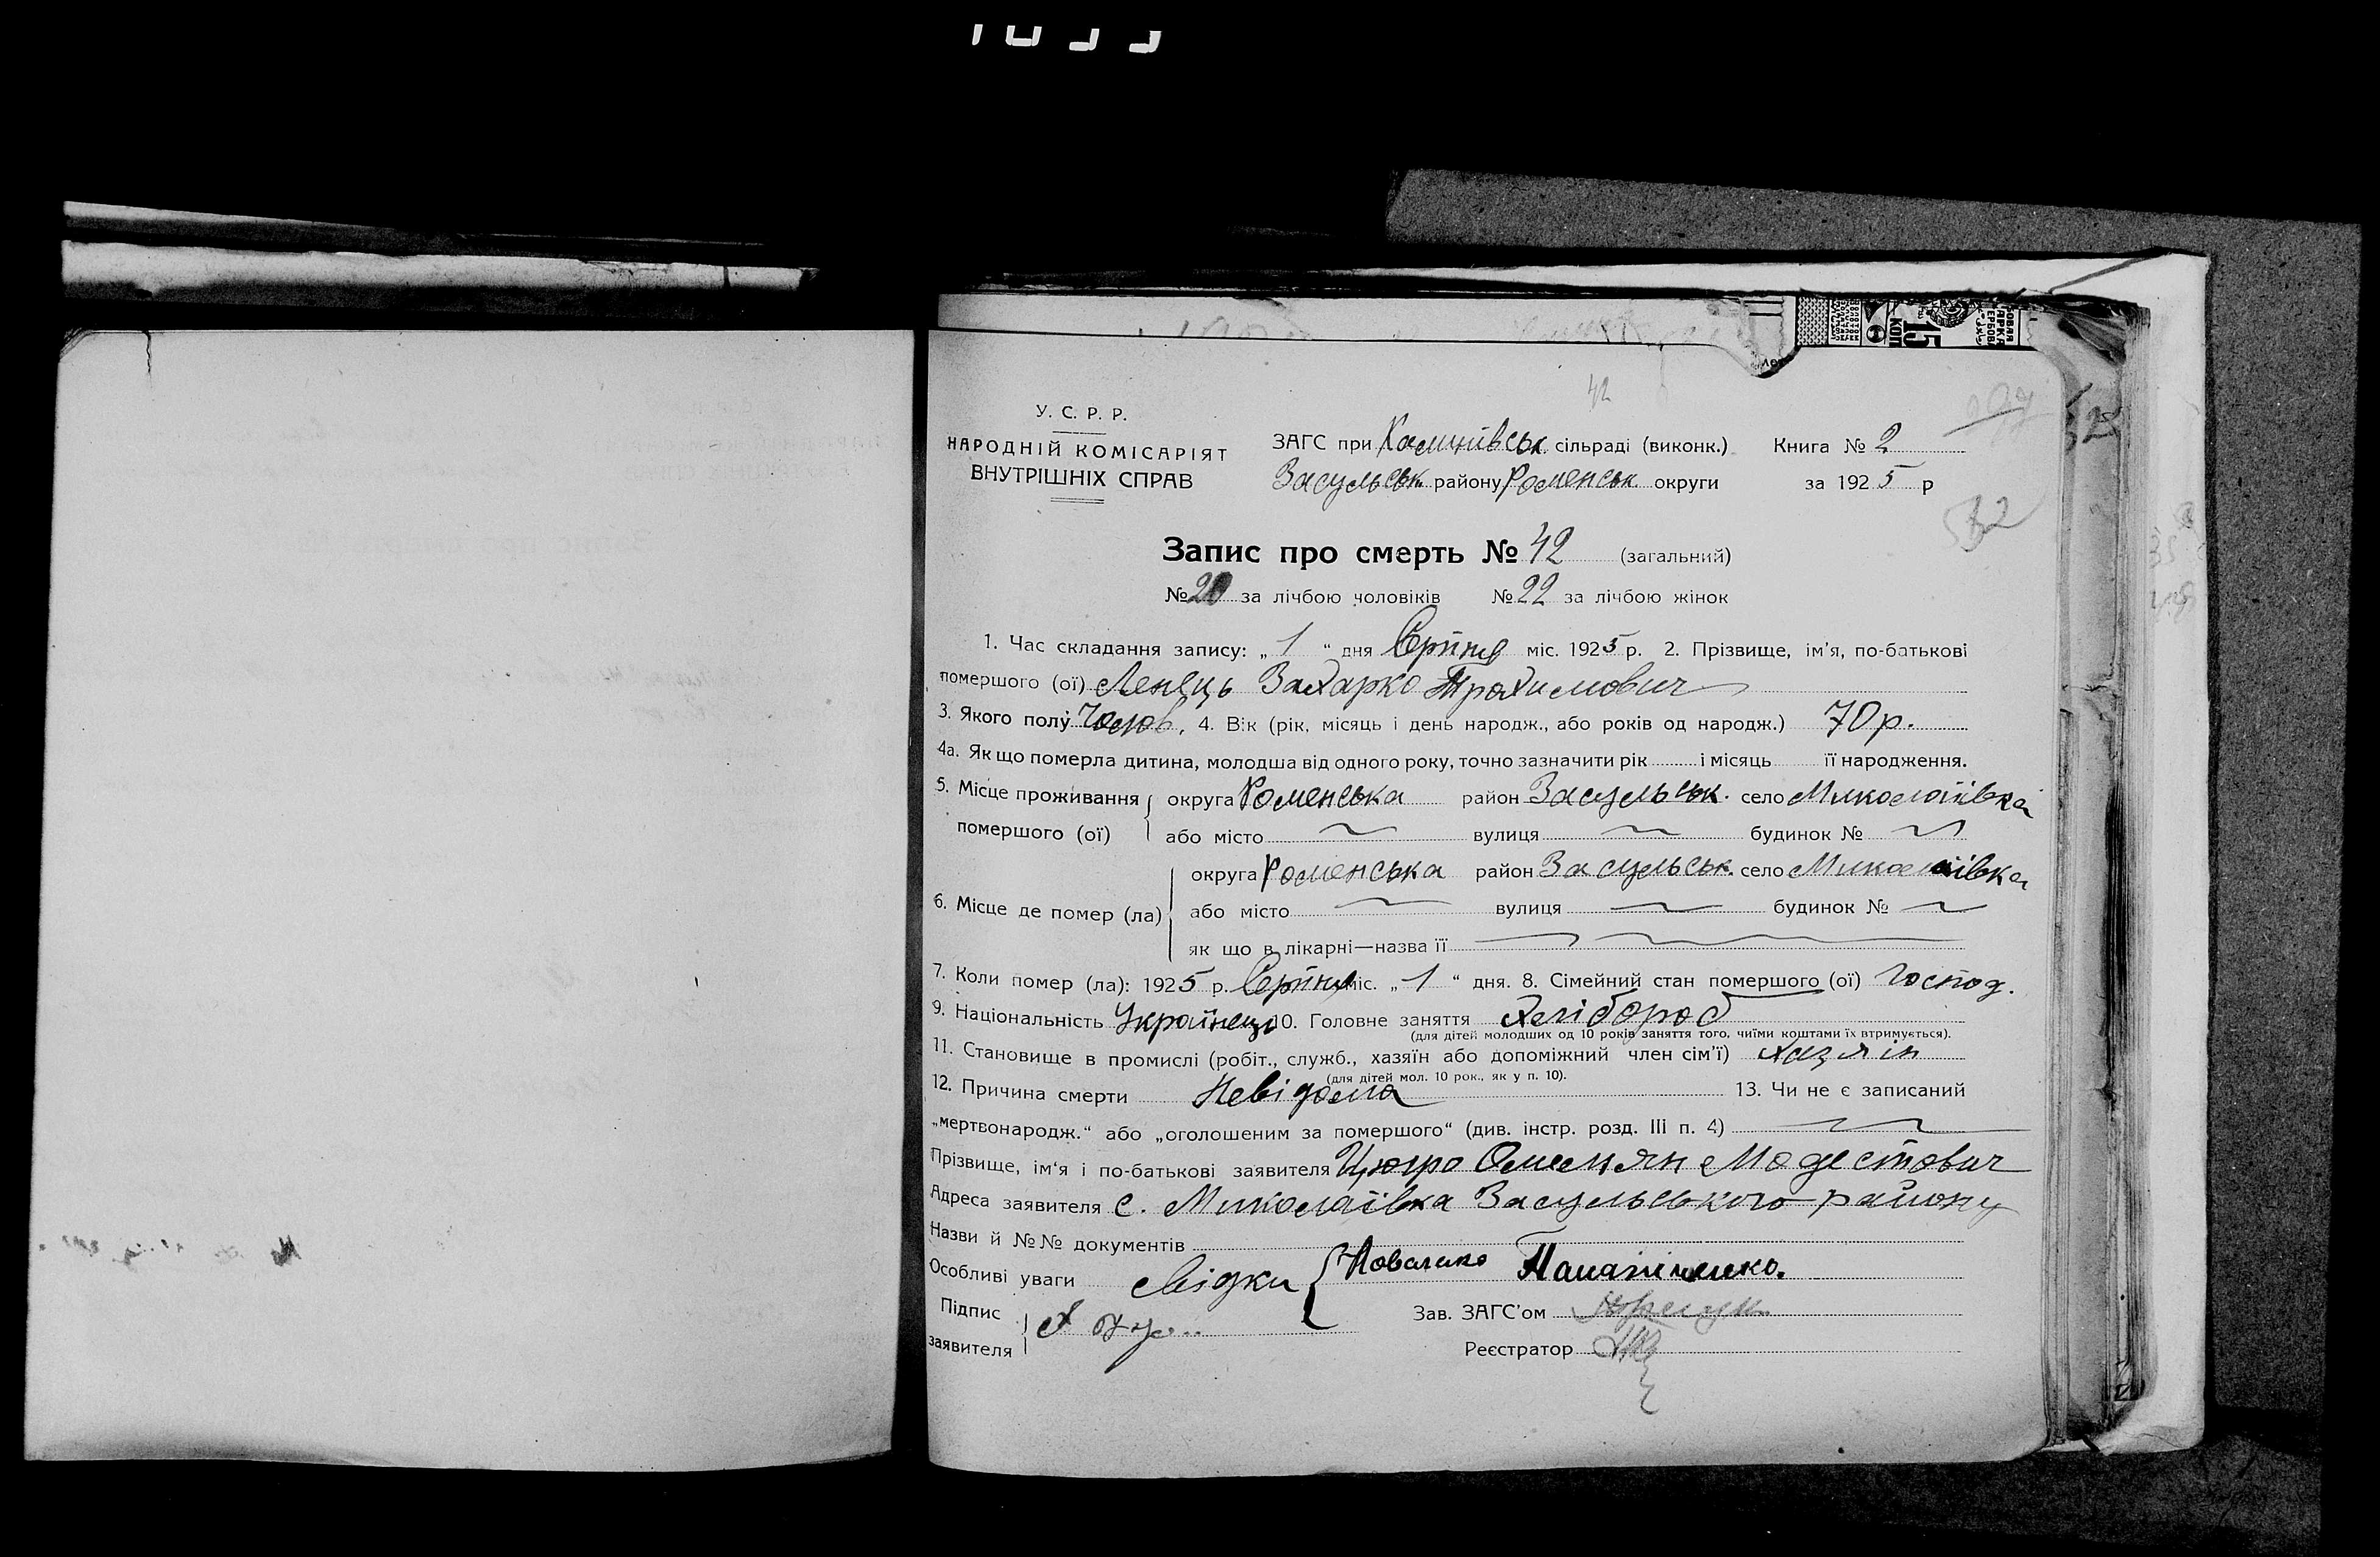 У. С. Р. Р.
НАРОДНІЙ КОМІСАРІЯТ
ВНУТРІШНІХ СПРАВ
42
ЗАГС при сільраді (виконк.) Книга № 2
Засульськ. району Роменськ округи за 1925 р
Запис про смерть № 42 (загальний)
№ 20 за лічбою чоловіків № 22 за лічбою жінок
1. Час складання запису: „ 1 “ дня Серпня міс. 1925 р. 2. Прізвище, ім’я, по-батькові
помершого (ої) Ленець Захарко Трохимович
3. Якого полу Чолов. 4. Вік (рік, місяць і день народж., або років од народж.) 70 р.
4а. Як що померла дитина, молодша від одного року, точно зазначити рік і місяць її народження.
5. Місце проживання округа Роменська район Засульськ. село Миколаївка
помершого (ої) або місто вулиця будинок №
округа Роменська район Засульськ. село Миколаївка
6. Місце де помер (ла) або місто вулиця будинок №
як що в лікарні—назва її
7. Коли помер (ла): 1925 р. Серпня міс. „ 1 “ дня. 8. Сімейний стан помершого (ої) Господ.
9. Національність Українець 10. Головне заняття Хлібороб
(для дітей молодших од 10 років заняття того, чиїми коштами їх втримується).
11. Становище в промислі (робіт., служб., хазяїн або допоміжний член сім’ї) хазяїн
(для дітей мол. 10 рок., як у п. 10).
12. Причина смерти Невідома 13. Чи не є записаний
„мертвонародж.“ або „оголошеним за помершого“ (див. інстр. розд. III п. 4)
Прізвище, ім‘я і по-батькові заявителя Омелян Модестович
Адреса заявителя с. Миколаївка Засульського району
Назви й №№ документів
Особливі уваги свідки Коваленко
Підпис
заявителя
Зав. ЗАГС’ом
Реєстратор